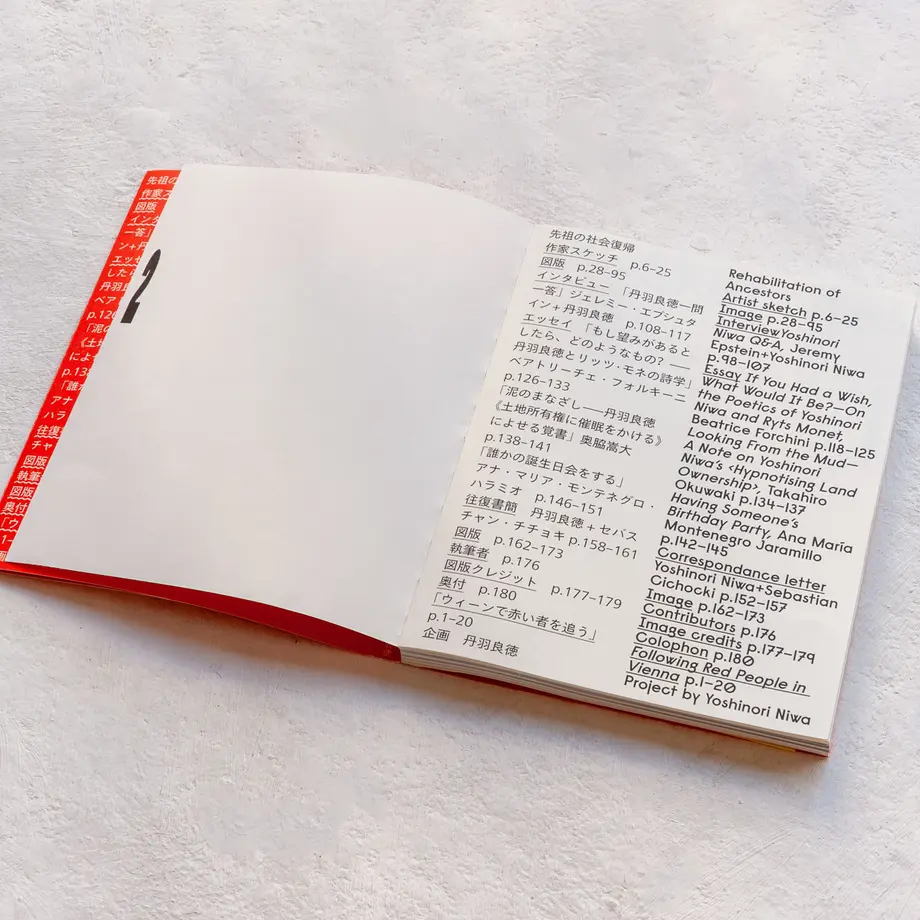 先祖の
作家ス
図版
インタ
一答」
ン+丹
エッセ
したら
丹羽良
ベアト
p.126
「泥の
《土地
によせ
p.138
「誰か
アナ
ハラミ
往復書
チャ
図版
執筆
図版
奥付
「ウィ
2
先祖の社会復帰
作家スケッチ p.6–25
図版 p.28–95
インタビュー 「丹羽良徳一問
一答」ジェレミー・エプシュタ
イン+丹羽良徳 p.108–117
エッセイ 「もし望みがあると
したら、どのようなもの? ——
丹羽良徳とリッツ・モネの詩学」
ベアトリーチェ・フォルキーニ
p.126–133
「泥のまなざし——丹羽良徳
《土地所有権に催眠をかける》
によせる覚書」奥脇嵩大
p.138–141
「誰かの誕生日会をする」
アナ・マリア・モンテネグロ・
ハラミオ p.146–151
往復書簡 丹羽良徳+セバス
チャン・チチョキ p.158–161
図版 p.162–173
執筆者 p.176
図版クレジット p.177–179
奥付 p.180
「ウィーンで赤い者を追う」
p.1–20
企画 丹羽良徳
Rehabilitation of
Ancestors
Artist sketch p.6–25
Image p.28–95
Interview Yoshinori
Niwa Q&A, Jeremy
Epstein+Yoshinori Niwa
p.98–107
Essay If You Had a Wish,
What Would It Be?—On
the Poetics of Yoshinori
Niwa and Ryts Monet,
Beatrice Forchini p.118–125
Looking From the Mud—
A Note on Yoshinori
Niwa's <Hypnotising Land
Ownership>, Takahiro
Okuwaki p.134–137
Having Someone's
Birthday Party, Ana María
Montenegro Jaramillo
p.142–145
Correspondance letter
Yoshinori Niwa+Sebastian
Cichocki p.152–157
Image p.162–173
Contributors p.176
Image credits p.177–179
Colophon p.180
Following Red People in
Vienna p.1–20
Project by Yoshinori Niwa